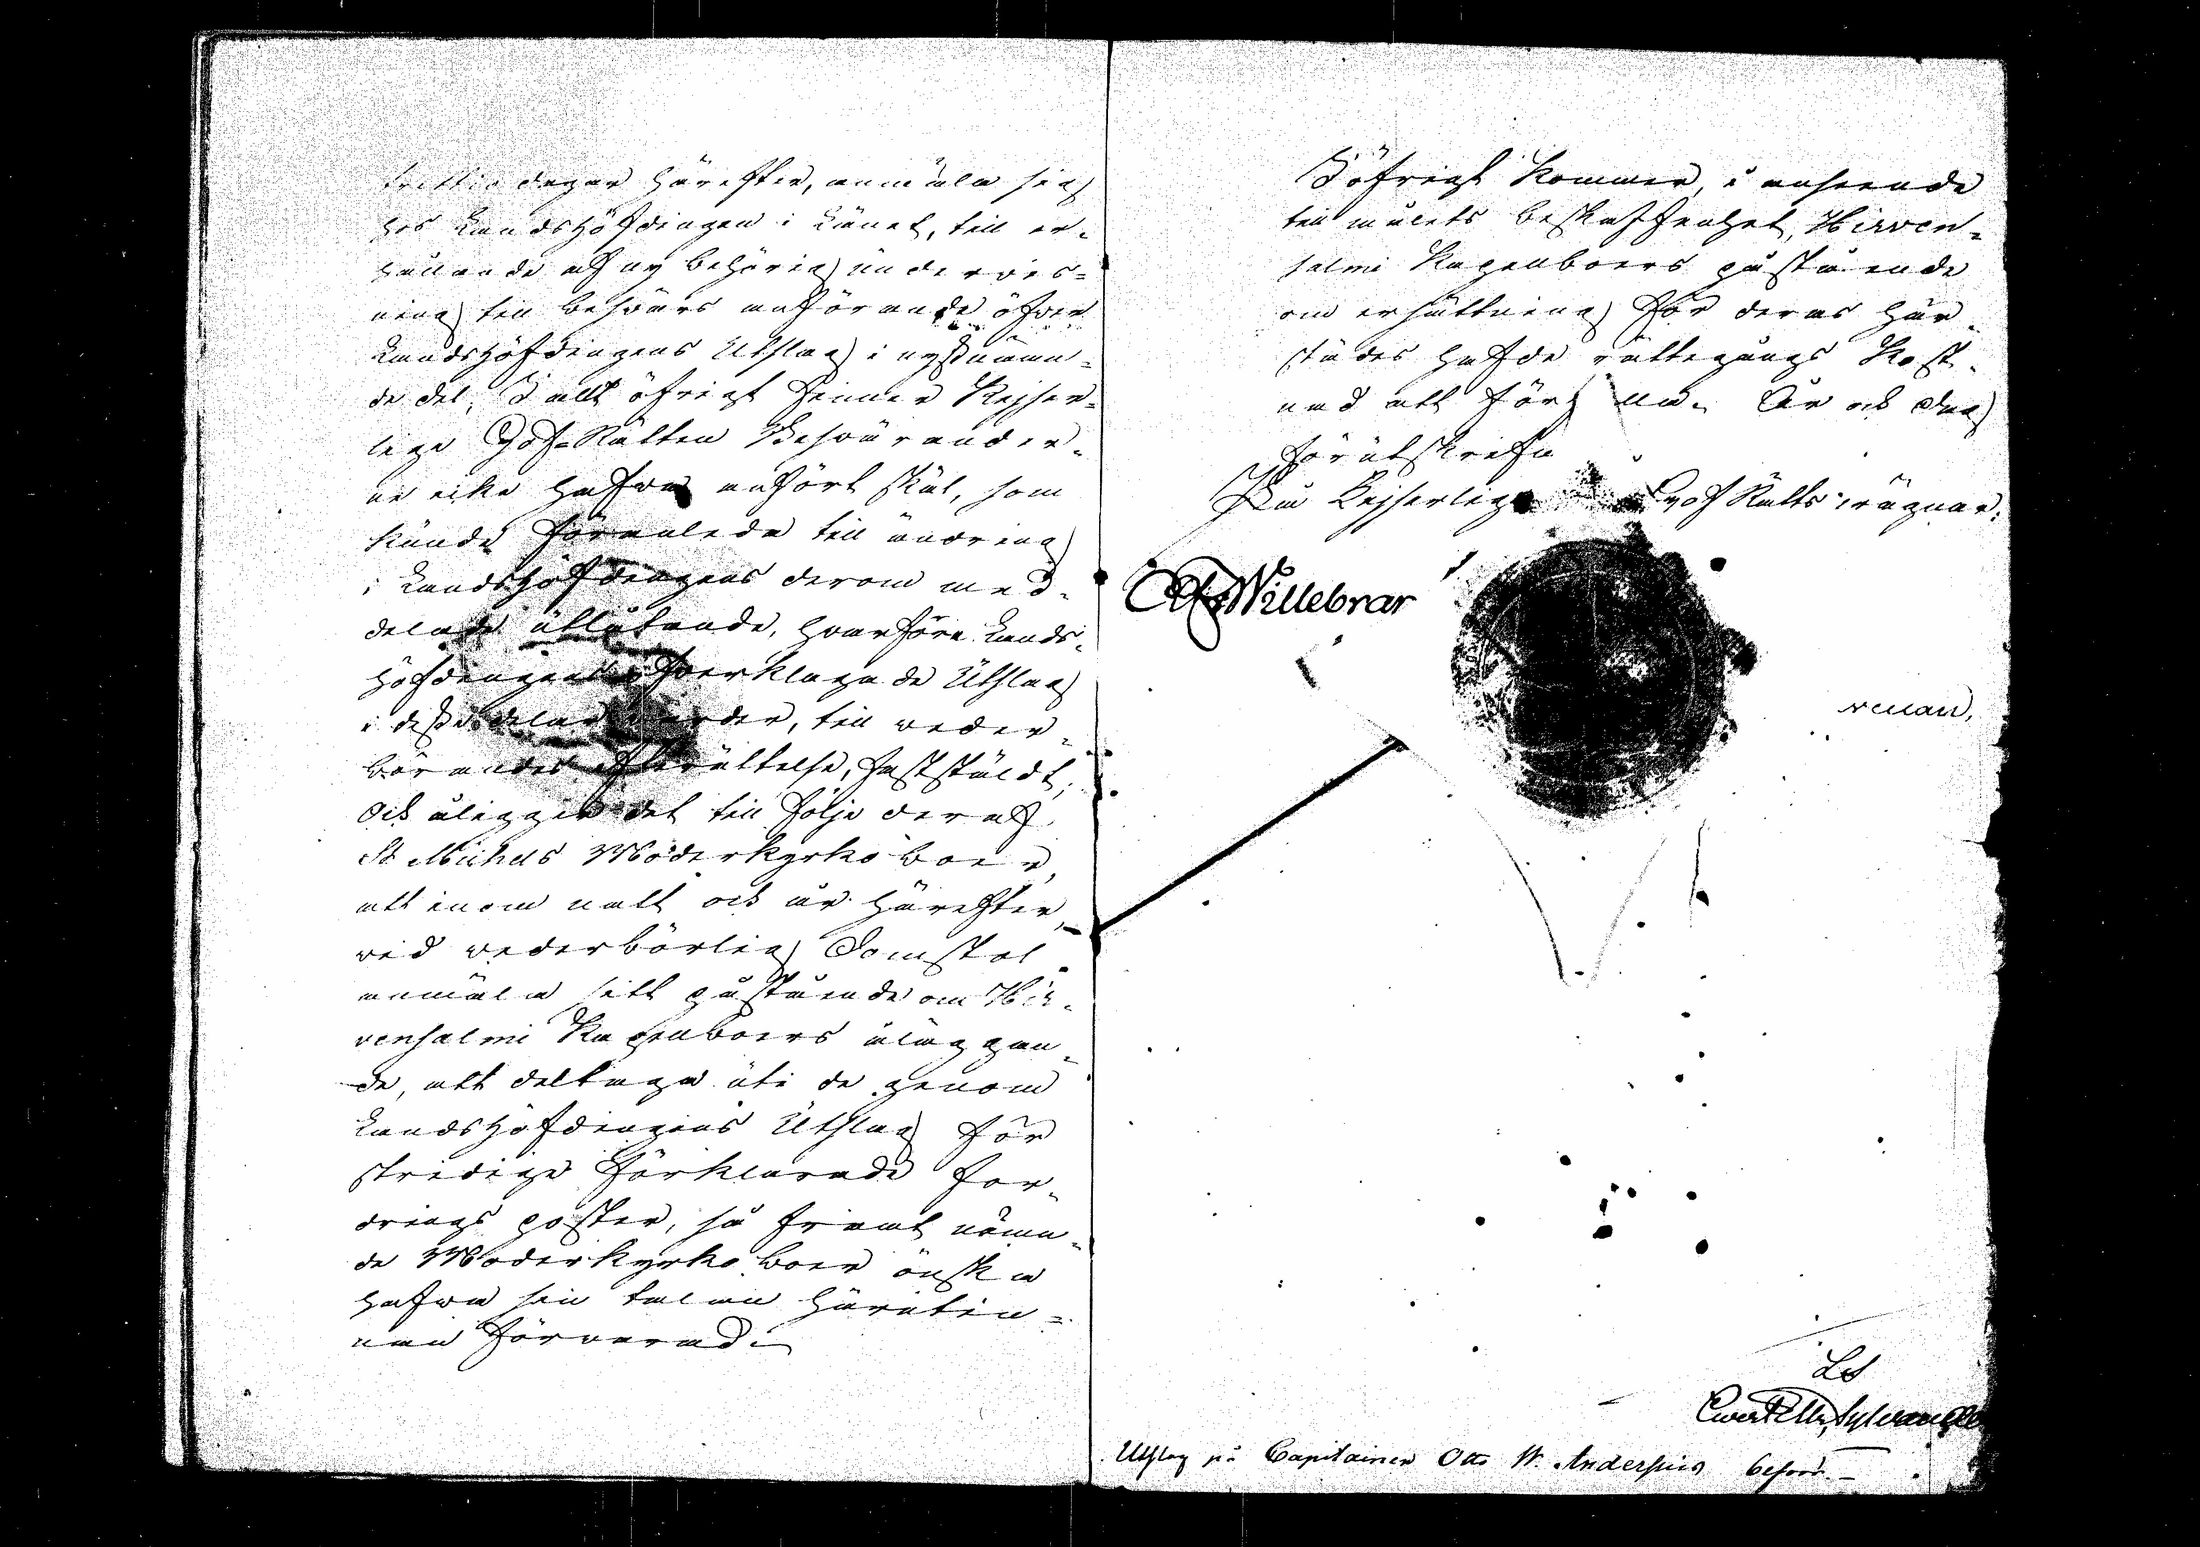 trettio dagar härefter, anmäla sig
hos Landshöfdingen i Länet, till er-
hållande af ny behörig underwis-
ning till beswärs anförande öfwer
Landshöfdingens Utslag i nystnämn-
de del; I allt öfrigt finner Kejser-
lige Hof-Rätten Beswärander-
ne icke hafwa anfört skäl, som
kunde föranleda till ändring
i Landshöfdingens derom med-
delade utlåtande, hwarföre Lands-
höfdingens öfwerklagade Utslag
i desse delar warder, till weder-
börandes efterrättelse, fastställdt;
Ock åligger det till följe deraf
St Michels Moderkyrkoboer,
att inom natt ock år härefter,
wid wederbörlig Domstol
anmäla sitt påstående om Hir-
vensalmi Kapellboers åläggan-
de, att deltaga uti de genom
Landshöfdingens Utslag för
stridige förklarade for-
drings poster, så framt nämn-
de Moderkyrko boer önska
hafwa sin talan härutin-
nan förwarad.
I öfrigt kommer, i anseende
till målets beskaffenhet, Hirven-
salmi Kapellboers påstående
om ersättning för deras här-
städes hafde rättegångs kost-
nad att förfalla. År ock dag
förutskrefne
På Kejserlige Hof Rätts wägnar:
Willebrar
Utslag på Capitainen Otto W. Anderssins beswr.